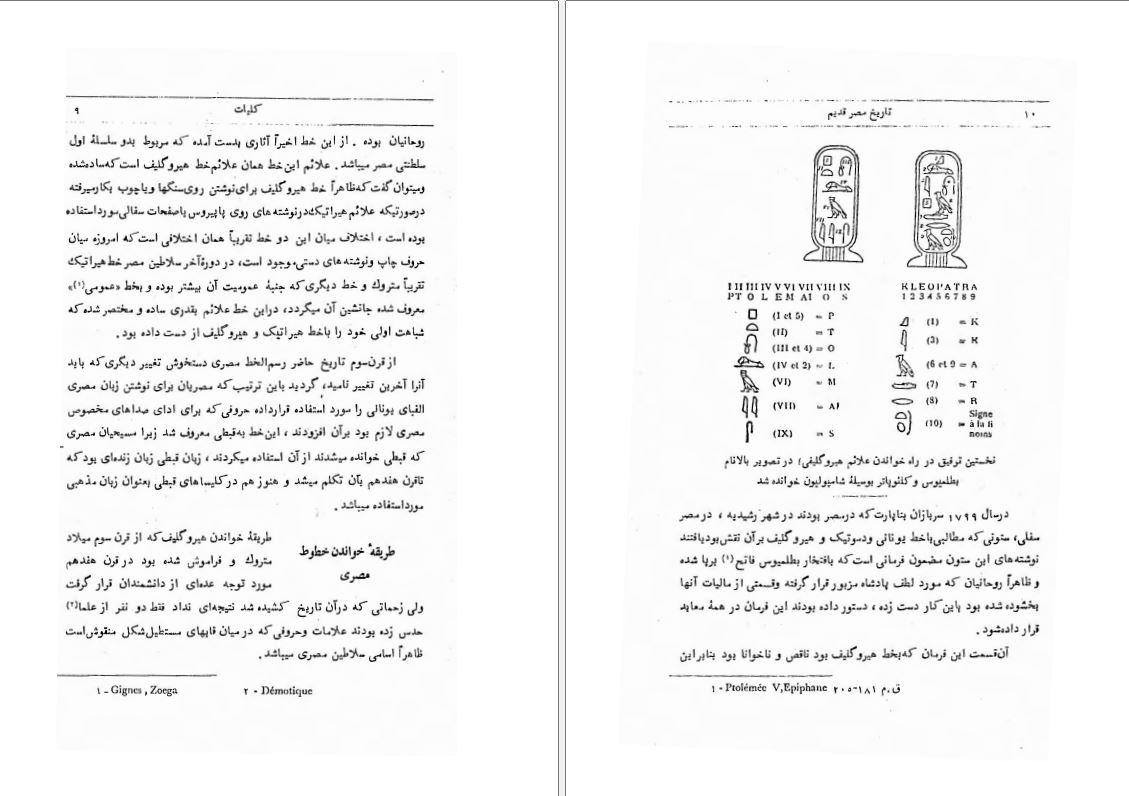 کلیات
۹
روحانیان بوده . از این خط اخیراً آثاری بدست آمده که مربوط بدو سلسلهٔ اول
سلطنتی مصر میباشد . علائم این خط همان علائم خط هیروگلیف است که ساده شده
ومیتوان گفت که ظاهراً خط هیروگلیف برای نوشتن روی سنگها و یا چوب بکار میرفته
درصورتیکه علائم هیراتیک درنوشته های روی پاپیروس یا صفحات سفالی مورد استفاده
بوده است ، اختلاف میان این دو خط تقریباً همان اختلافی است که امروزه میان
حروف چاپ ونوشته های دستی موجود است، در دورهٔ آخر سلاطین مصر خط هیراتیک
تقریباً متروک و خط دیگری که جنبهٔ عمومیت آن بیشتر بوده و بخط «عمومی(۱)»
معروف شده جانشین آن میگردد، دراین خط علائم بقدری ساده و مختصر شده که
شباهت اولی خود را باخط هیراتیک و هیروگلیف از دست داده بود .
از قرن سوم تاریخ حاضر رسم الخط مصری دستخوش تغییر دیگری که باید
آنرا آخرین تغییر نامید، گردید باین ترتیب که مصریان برای نوشتن زبان مصری
الفبای یونانی را مورد استفاده قرارداده حروفی که برای ادای صداهای مخصوص
مصری لازم بود برآن افزودند ، این خط به قبطی معروف شد زیرا مسیحیان مصری
که قبطی خوانده میشدند از آن استفاده میکردند ، زبان قبطی زبان زنده‌ای بود که
تاقرن هفدهم بآن تکلم میشد و هنوز هم درکلیساهای قبطی بعنوان زبان مذهبی
مورداستفاده میباشد .
طریقهٔ خواندن خطوط
مصری
طریقهٔ خواندن هیروگلیف که از قرن سوم میلاد
متروك و فراموش شده بود در قرن هفدهم
مورد توجه عده‌ای از دانشمندان قرار گرفت
ولی زحماتی که درآن تاریخ کشیده شد نتیجه‌ای نداد فقط دو نفر از علما(۲)
حدس زده بودند علامات وحروفی که درمیان قابهای مستطیل شکل منقوش است
ظاهراً اسامی سلاطین مصری میباشد .
۱ - Gignes , Zoega
۲ - Démotique
تاریخ مصر قدیم
۱۰
I II III IV V VI VII VIII IX
PT O L E M AI O S
(I et 5) = P
(II) = T
(III et 4) = O
(IV et 2) = L
(VI) = M
(VII) = AI
(IX) = S
K L E O P A T R A
1 2 3 4 5 6 7 8 9
(1) = K
(3) = K
(6 et 9 = A
(7) = T
(8) = R
(10) = Signe
à la fi
noms
نخستین توفیق در راه خواندن علائم هیروگلیفی؛ در تصویر بالا نام
بطلمیوس و کلئوپاتر بوسیلهٔ شامپولیون خوانده شد
درسال ۱۷۹۹ سربازان بناپارت که درمصر بودند در شهر رشیدیه ، در مصر
سفلی، ستونی که مطالبی باخط یونانی ودموتیک و هیروگلیف برآن نقش بود یافتند
نوشته‌های این ستون مضمون فرمانی است که بافتخار بطلمیوس فاتح(۱) برپا شده
و ظاهراً روحانیان که مورد لطف پادشاه مزبور قرار گرفته وقسمتی از مالیات آنها
بخشوده شده بود باین کار دست زده ، دستور داده بودند این فرمان در همهٔ معابد
قرار داده شود .
آن قسمت این فرمان که بخط هیروگلیف بود ناقص و ناخوانا بود بنابراین
۱ - Ptolémée V,Epiphane ۲۰۵-۱۸۱ ق.م